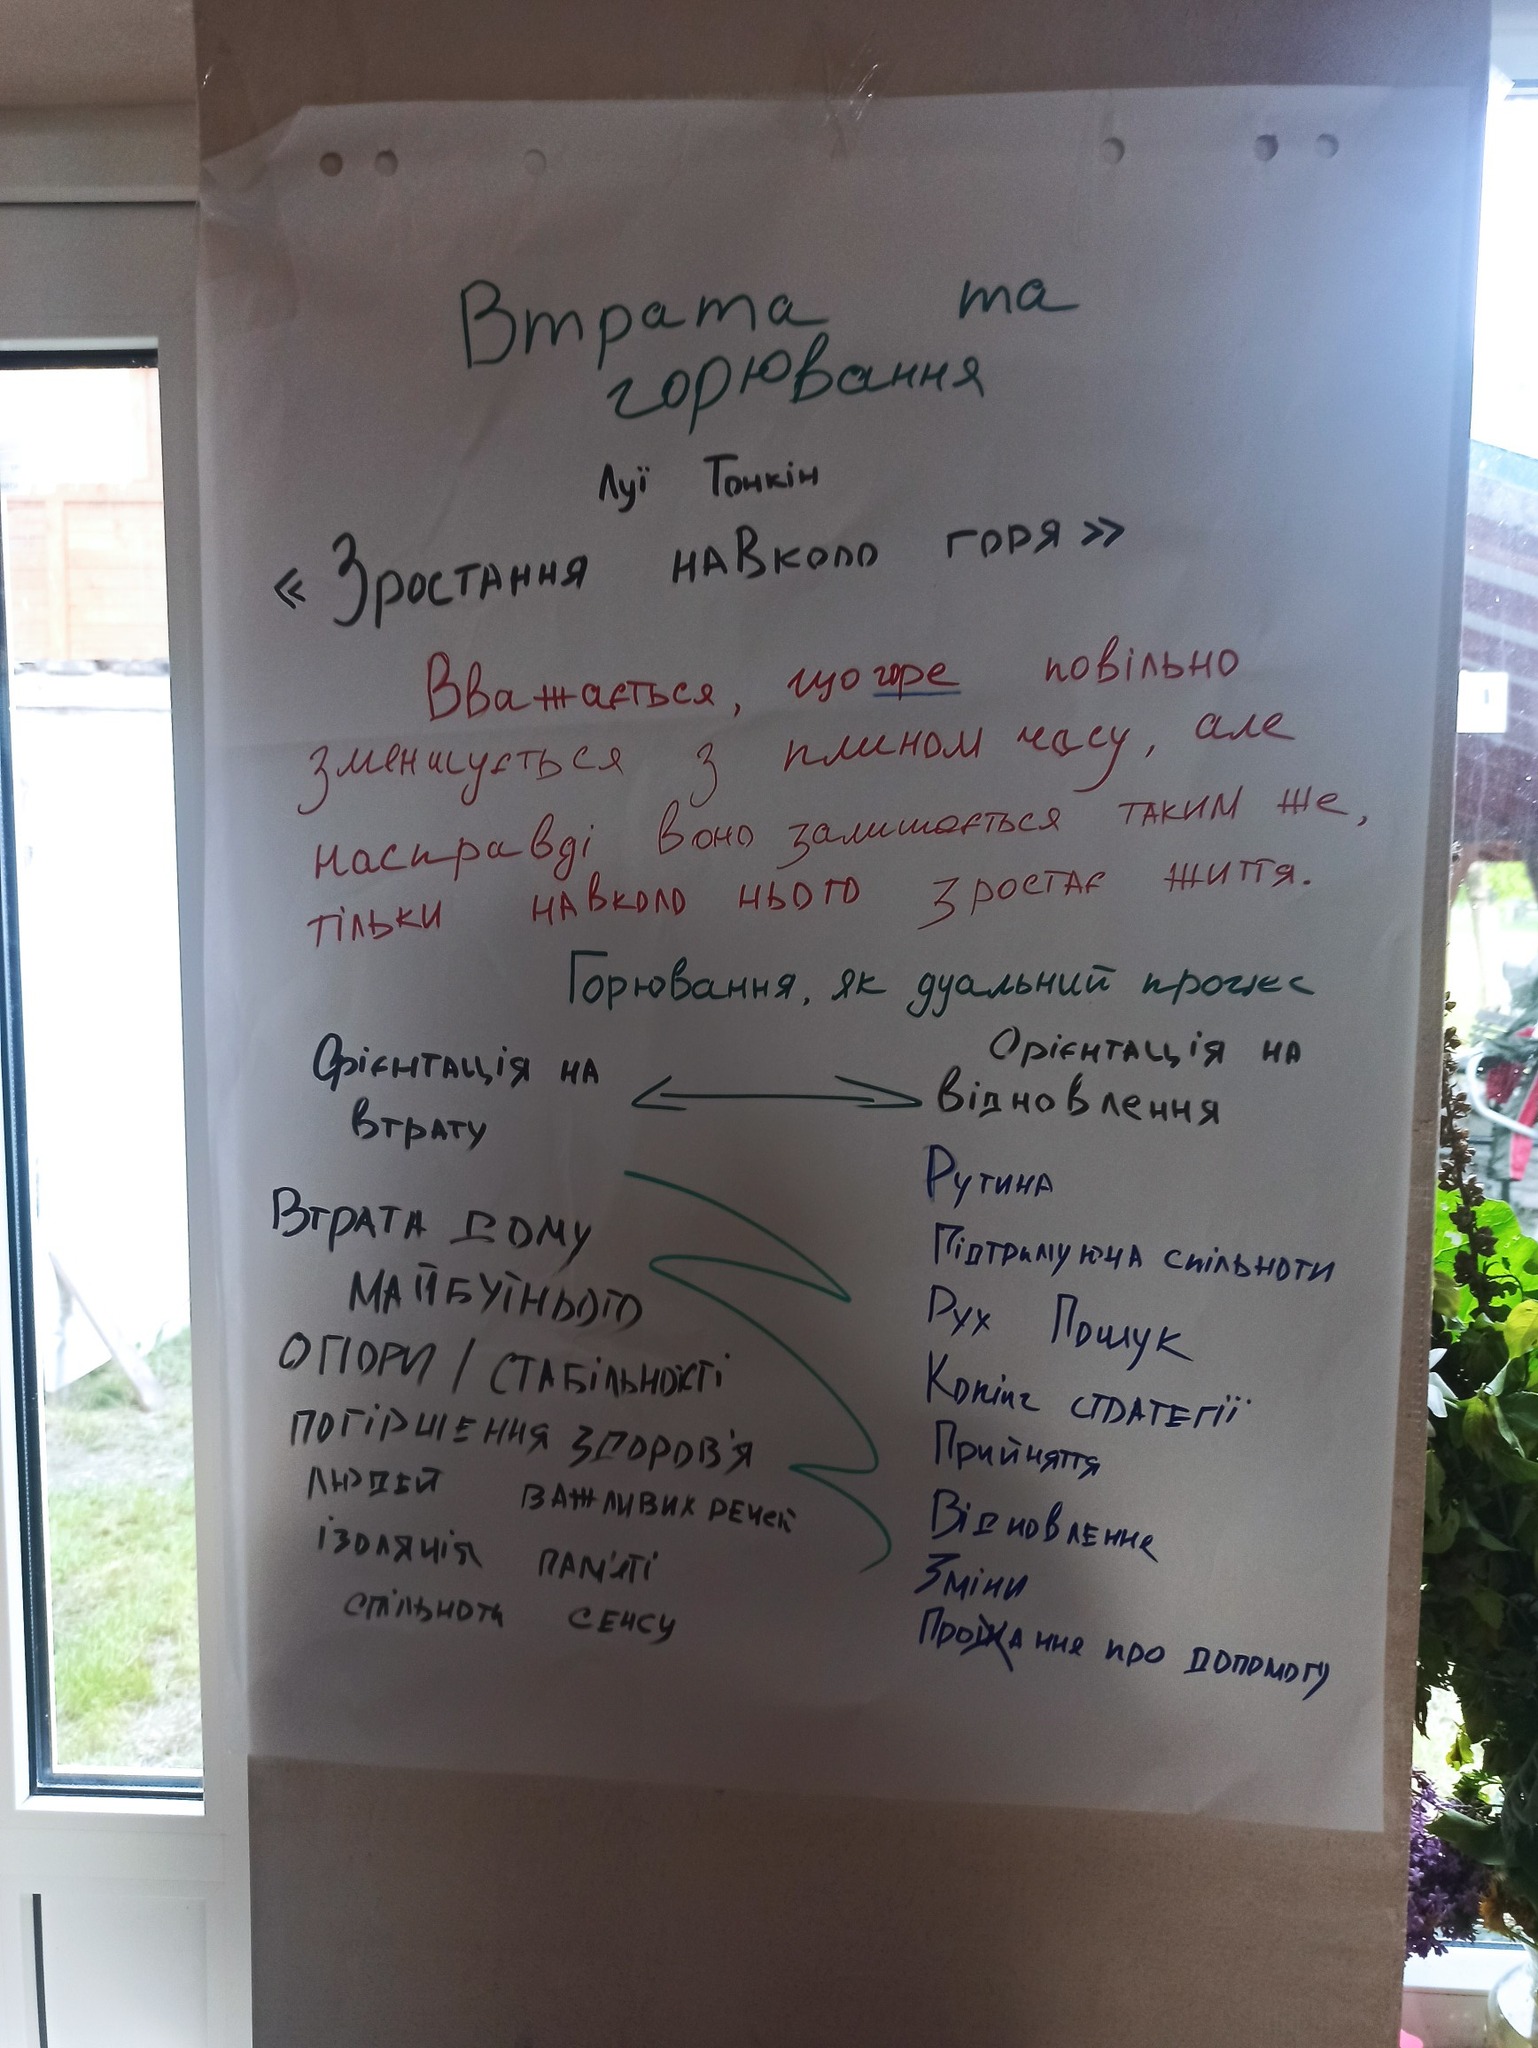 Втрата та
горювання
Луї Тонкін
«Зростання навколо горя»
Вважається, що горе повільно
зменшується з плином часу, але
насправді воно залишається таким же,
тільки навколо нього зростає життя.
Горювання, як дуальний процес
Орієнтація на
втрату
Орієнтація на
відновлення
Втрата дому
майбуїнього
опори / стабільності
погіршення здоров'я
людей важливих речей
ізоляція пам'яті
спільноти сенсу
Рутина
Підтримуюча спільноти
Рух Пошук
Копінг стратегії
Прийняття
Відновлення
Зміни
про допомогу